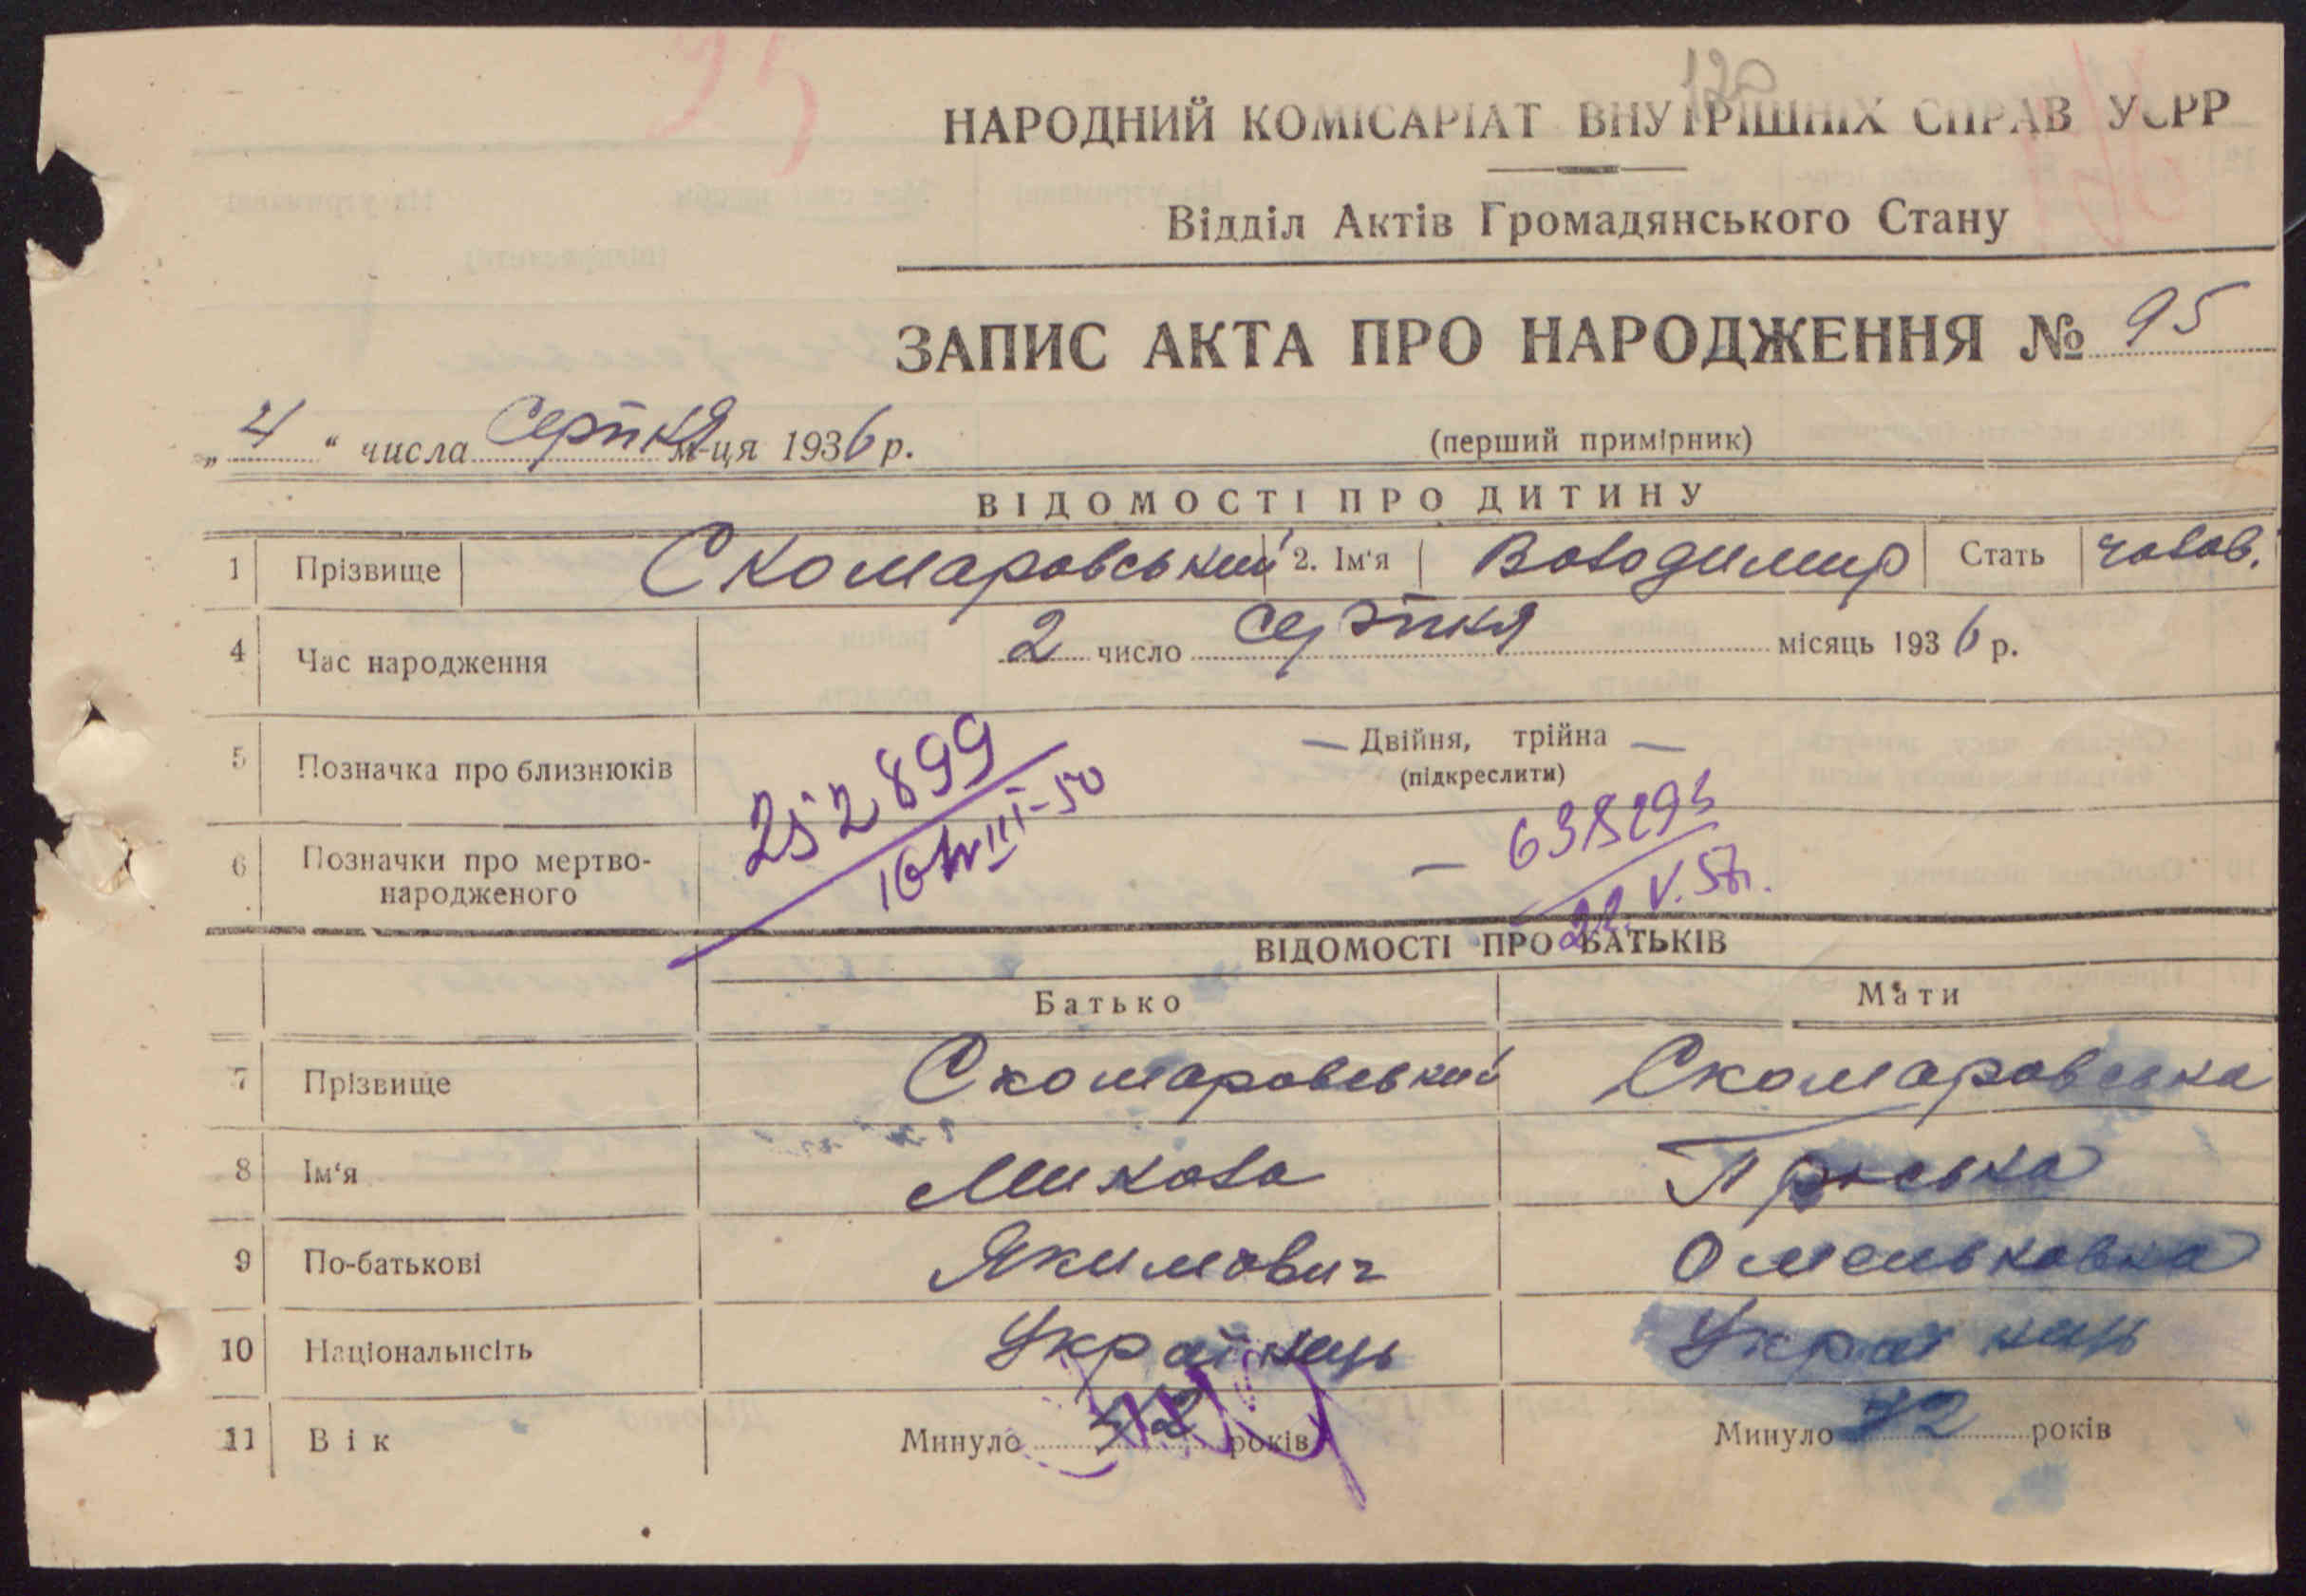 25
120
НАРОДНИЙ КОМІСАРІАТ ВНУТРІШНІХ СПРАВ УСРР
Відділ Актів Громадянського Стану
ЗАПИС АКТА ПРО НАРОДЖЕННЯ № 95
„4“ числа Серпня м-ця 1936 р.
(перший примірник)
ВІДОМОСТІ ПРО ДИТИНУ
1 Прізвище Скомаровський 2. Ім'я Володимир Стать чолов.
4 Час народження 2 число серпня місяць 1936 р.
5 Позначка про близнюків — Двійня, трійна —
(підкреслити)
252899
6 Позначки про мертво-
народженого —
22.V.57.
ВІДОМОСТІ ПРО БАТЬКІВ
Батько Мати
7 Прізвище Скомаровський Скомаровська
8 Ім'я Микола Пріська
9 По-батькові Якимович Омельковна
10 Національнсіть Українець Українець
11 Вік Минуло років Минуло років